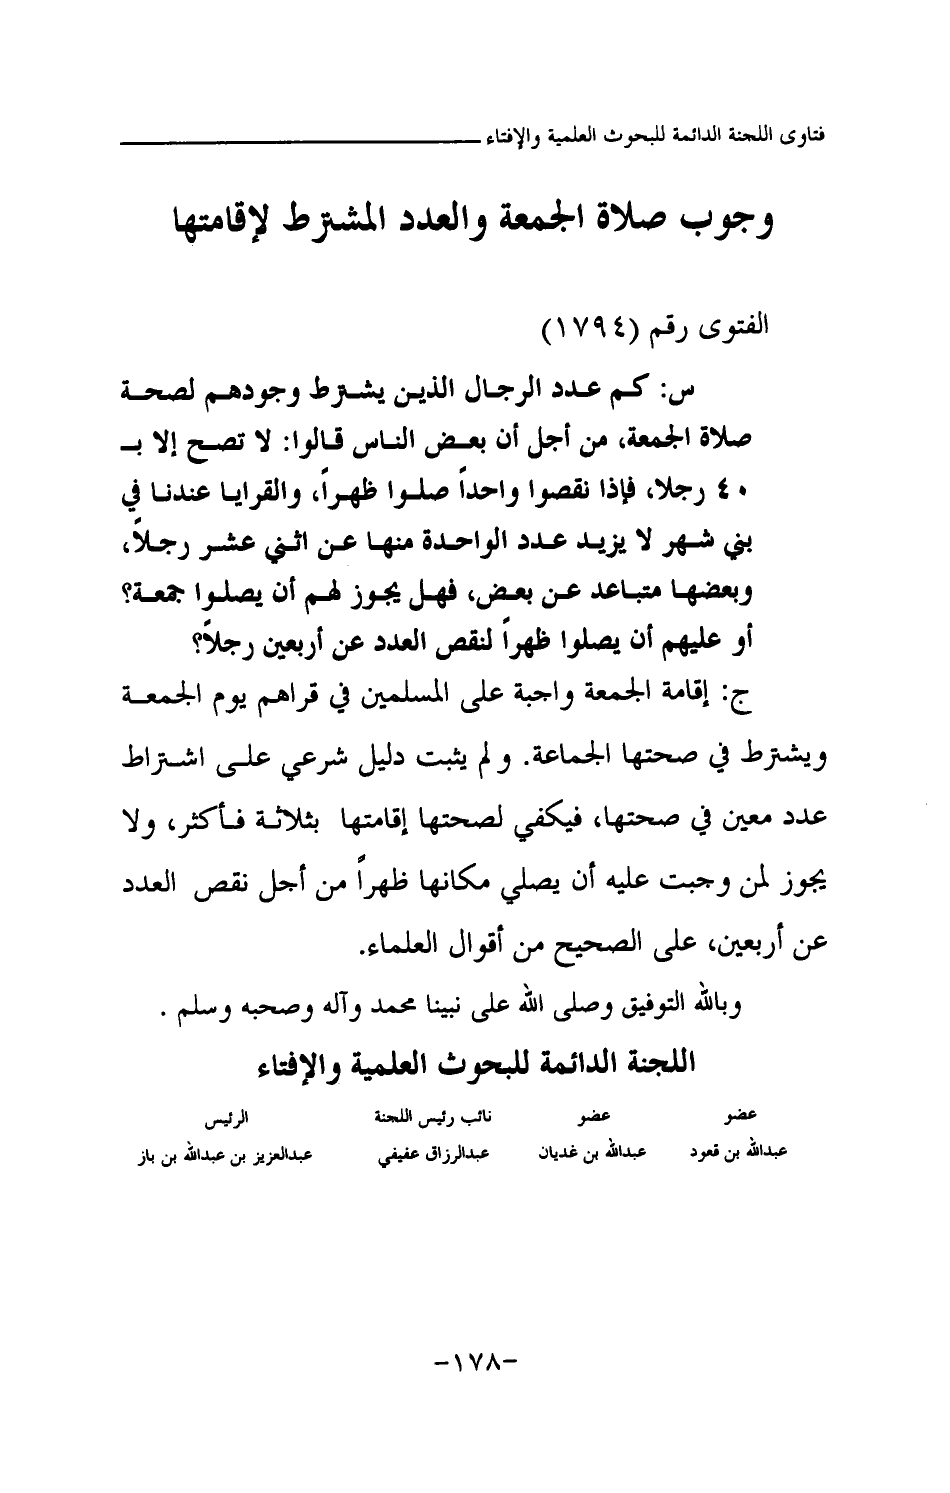 فتاوى اللجنة الدائمة للبحوث العلمية والإفتاء
وجوب صلاة الجمعة والعدد المشترط لإقامتها
الفتوى رقم (١٧٩٤)
س: كم عدد الرجال الذين يشترط وجودهم لصحة
صلاة الجمعة، من أجل أن بعض الناس قالوا: لا تصح إلا بـ
٤٠ رجلا، فإذا نقصوا واحداً صلوا ظهراً، والقرايا عندنا في
بني شهر لا يزيد عدد الواحدة منها عن اثني عشر رجلاً،
وبعضها متباعد عن بعض، فهل يجوز لهم أن يصلوا جمعة؟
أو عليهم أن يصلوا ظهراً لنقص العدد عن أربعين رجلاً؟
ج: إقامة الجمعة واجبة على المسلمين في قراهم يوم الجمعة
ويشترط في صحتها الجماعة. ولم يثبت دليل شرعي على اشتراط
عدد معين في صحتها، فيكفي لصحتها إقامتها بثلاثة فأكثر، ولا
يجوز لمن وجبت عليه أن يصلي مكانها ظهراً من أجل نقص العدد
عن أربعين، على الصحيح من أقوال العلماء.
وبالله التوفيق وصلى الله على نبينا محمد وآله وصحبه وسلم .
اللجنة الدائمة للبحوث العلمية والإفتاء
عضو عضو نائب رئيس اللجنة الرئيس
عبدالله بن قعود عبدالله بن غديان عبدالرزاق عفيفي عبدالعزيز بن عبدالله بن باز
-١٧٨-